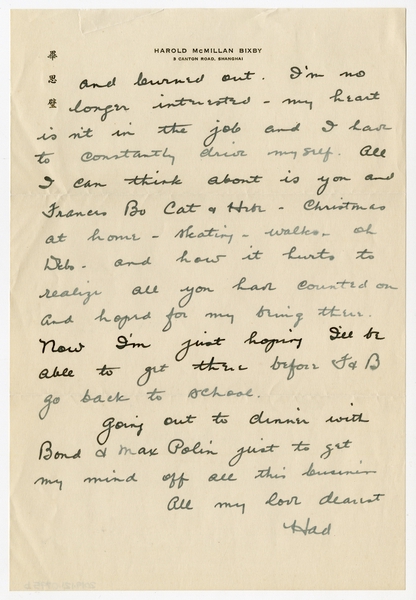 HAROLD McMILLAN BIXBY
3 CANTON ROAD, SHANGHAI
畢
思
璧
and burned out. I'm no
longer interested - my heart
isn't in the job and I have
to constantly drive myself. All
I can think about is you and
Frances Bo Cat & Hebe - Christmas
at home - skating - walks - oh
Debs - and how it hurts to
realize all you have counted on
and hoped for my being there.
Now I'm just hoping I'll be
able to get there before F & B
go back to school.
Going out to dinner with
Bond & Max Polin just to get
my mind off all this business
All my love dearest
Had